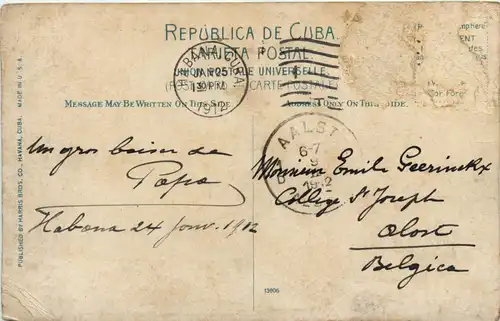 REPÚBLICA DE CUBA.
TARJETA POSTAL
UNION POSTALE UNIVERSELLE.
CARTE POSTALE
HABANA, CUBA.
JAN 25
1912
MESSAGE MAY BE WRITTEN ON THIS SIDE
ADDRESS ONLY ON THIS SIDE.
AALST
6-7
9
1912
Un gros baiser de
Papa
Habana 24 Janv. 1912
Monsieur Emile Geerinckx
College St Joseph
Alost
Belgica
PUBLISHED BY HARRIS BROS. CO., HAVANA, CUBA. MADE IN U. S. A.
13606